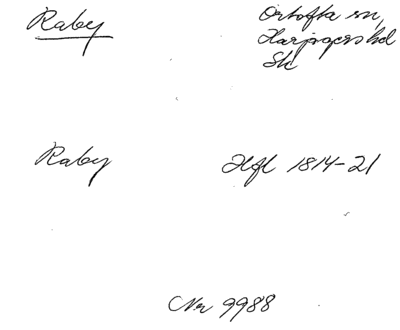 Raby
Örtofta sn,
Harjagers hd
Sk
Raby
Hfl 1814-21
Nr 9988